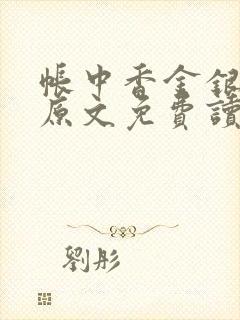 帳中香金銀
原文免費讀
劉彤